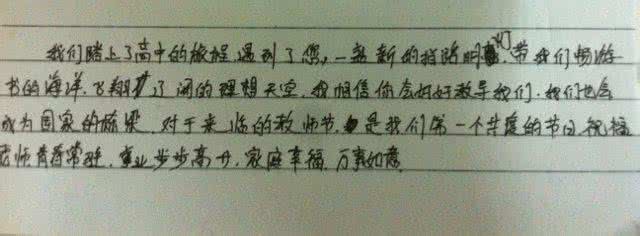 我们踏上了高中的旅程遇到了您,一盏新的指路明灯,带我们畅游
书的海洋.飞翔扩了阔的理想天空.我相信你会好好教导我们.我们也会
成为国家的栋梁.对于来临的教师节.是我们第一个共度的节日.祝福
老师青春常驻.事业步步高升.家庭幸福.万事如意.